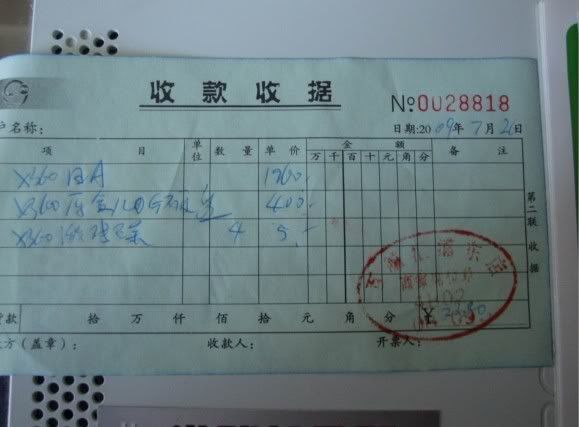 收款收据
№0028818
户名称: 日期:2009年7月2日
项 目 单位 数量 单价 金额 备注
万 千 百 十 元 角 分
X360日A 1960.-
X360 400.-
X360 4 5.-
第二联 收据
货款 拾 万 仟 佰 拾 元 角 分 ¥2380
方(盖章): 收款人: 开票人: